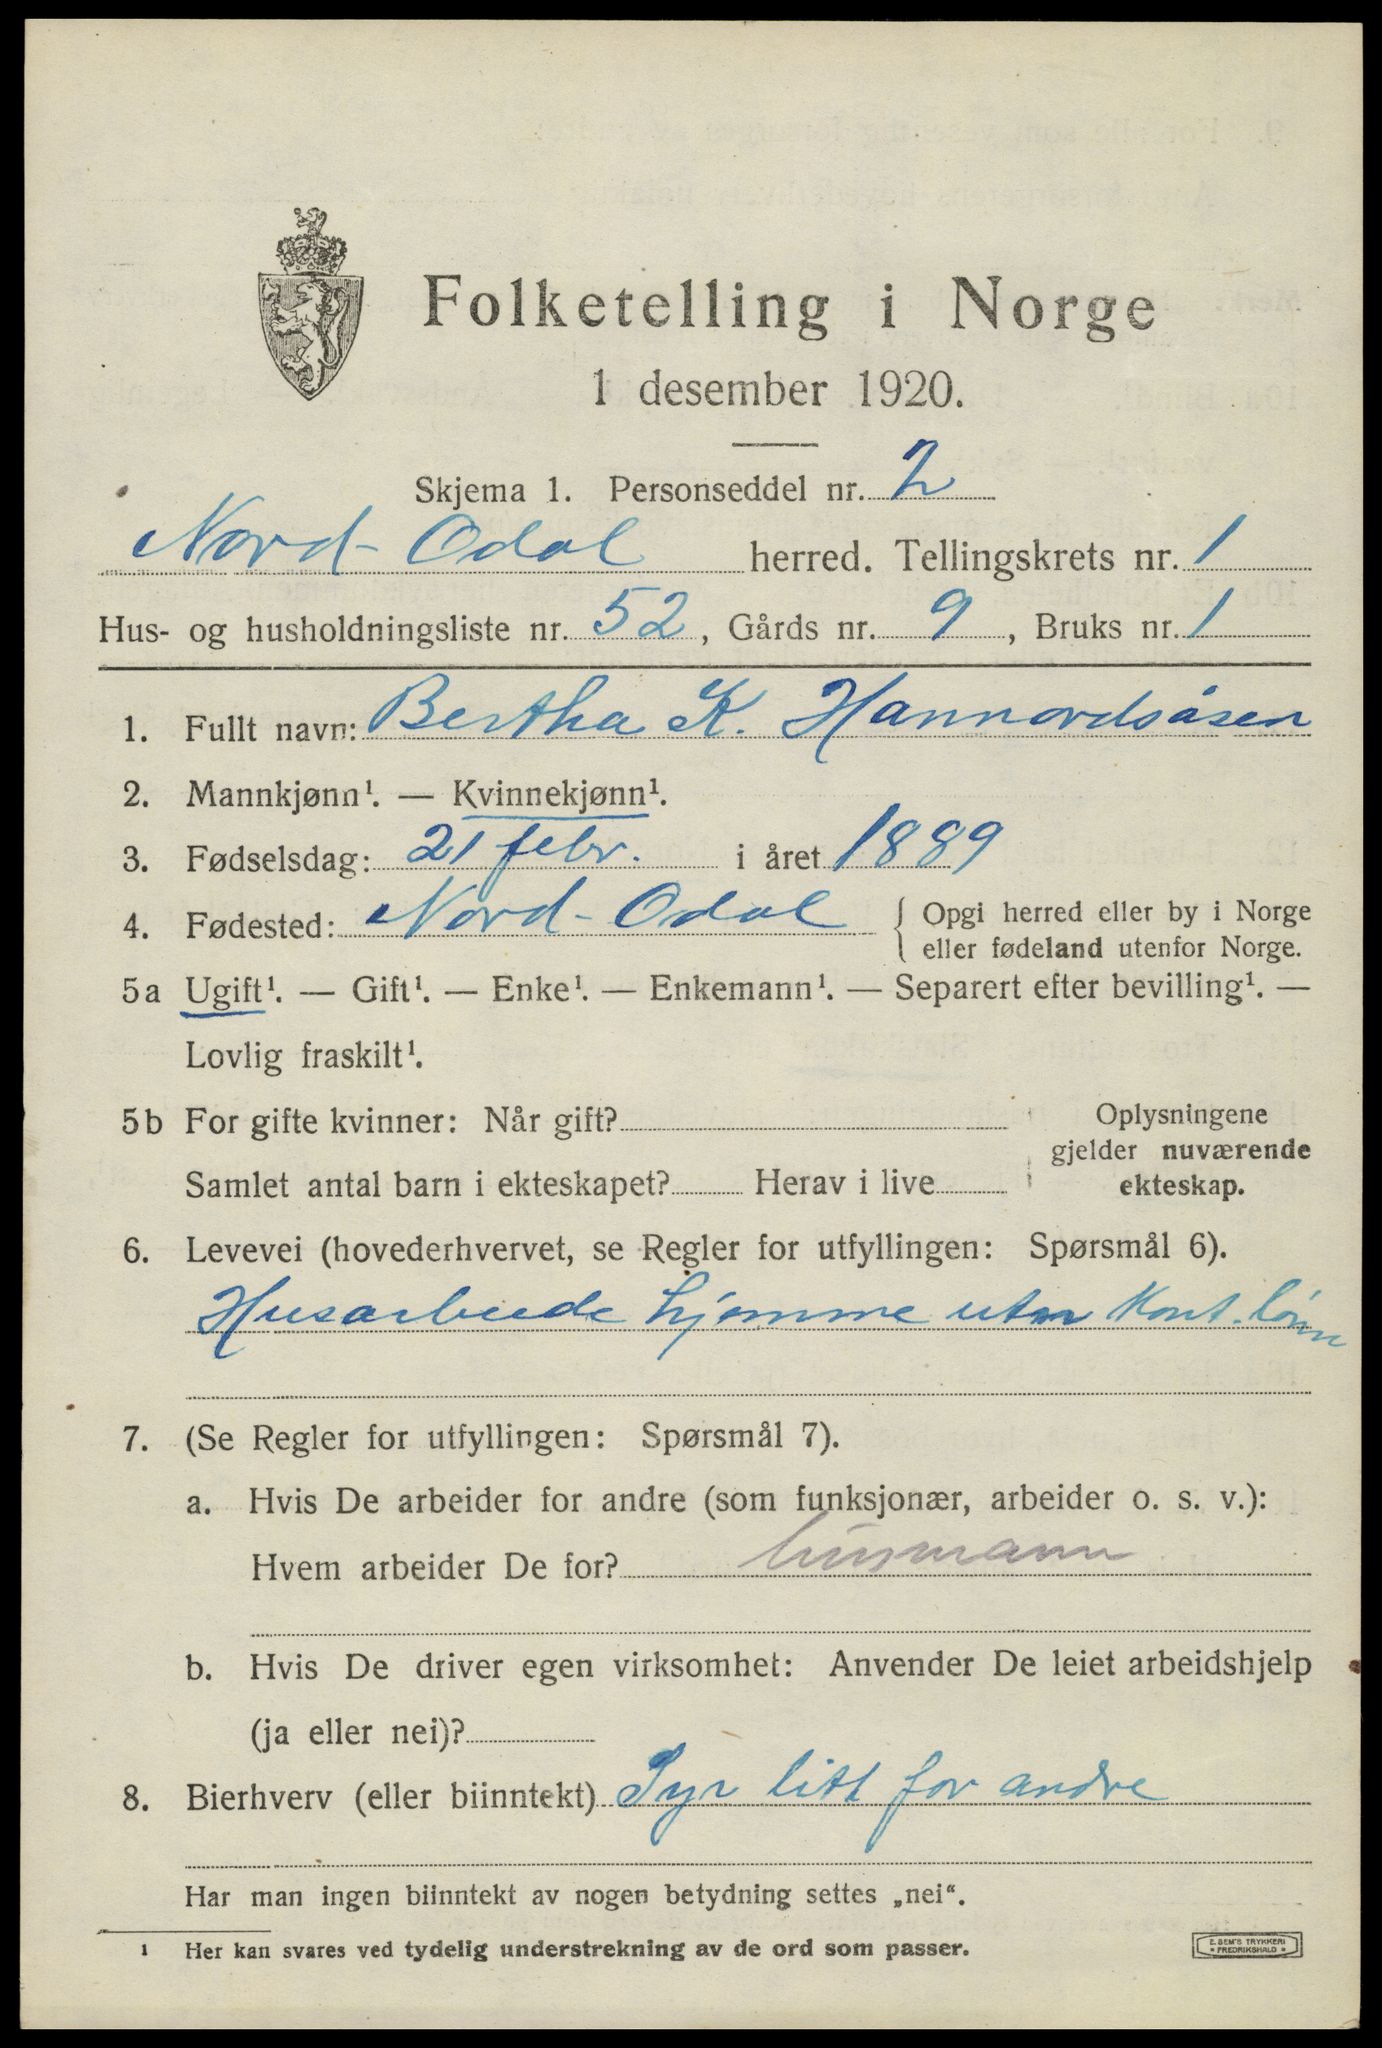 Folketelling i Norge
1 desember 1920.
Skjema 1. Personseddel nr. 2
Nord-Odal herred. Tellingskrets nr. 1
Hus- og husholdningsliste nr. 52, Gårds nr. 9, Bruks nr. 1
1. Fullt navn: Bertha K. Hannordsåsen
2. Mannkjønn¹. — Kvinnekjønn¹.
3. Fødselsdag: 21 febr. i året 1889
4. Fødested: Nord-Odal { Opgi herred eller by i Norge
eller fødeland utenfor Norge.
5a Ugift¹. — Gift¹. — Enke¹. — Enkemann¹. — Separert efter bevilling¹. —
Lovlig fraskilt¹.
5b For gifte kvinner: Når gift?
Samlet antal barn i ekteskapet? Herav i live
Oplysningene
gjelder nuværende
ekteskap.
6. Levevei (hovederhvervet, se Regler for utfyllingen: Spørsmål 6).
Husarbeide hjemme uten Kont. lønn
7. (Se Regler for utfyllingen: Spørsmål 7).
a. Hvis De arbeider for andre (som funksjonær, arbeider o. s. v.):
Hvem arbeider De for?
b. Hvis De driver egen virksomhet: Anvender De leiet arbeidshjelp
(ja eller nei)?
8. Bierhverv (eller biinntekt) Syr litt for andre
Har man ingen biinntekt av nogen betydning settes „nei“.
¹ Her kan svares ved tydelig understrekning av de ord som passer.
E. SEM'S TRYKKERI
FREDRIKSHALD